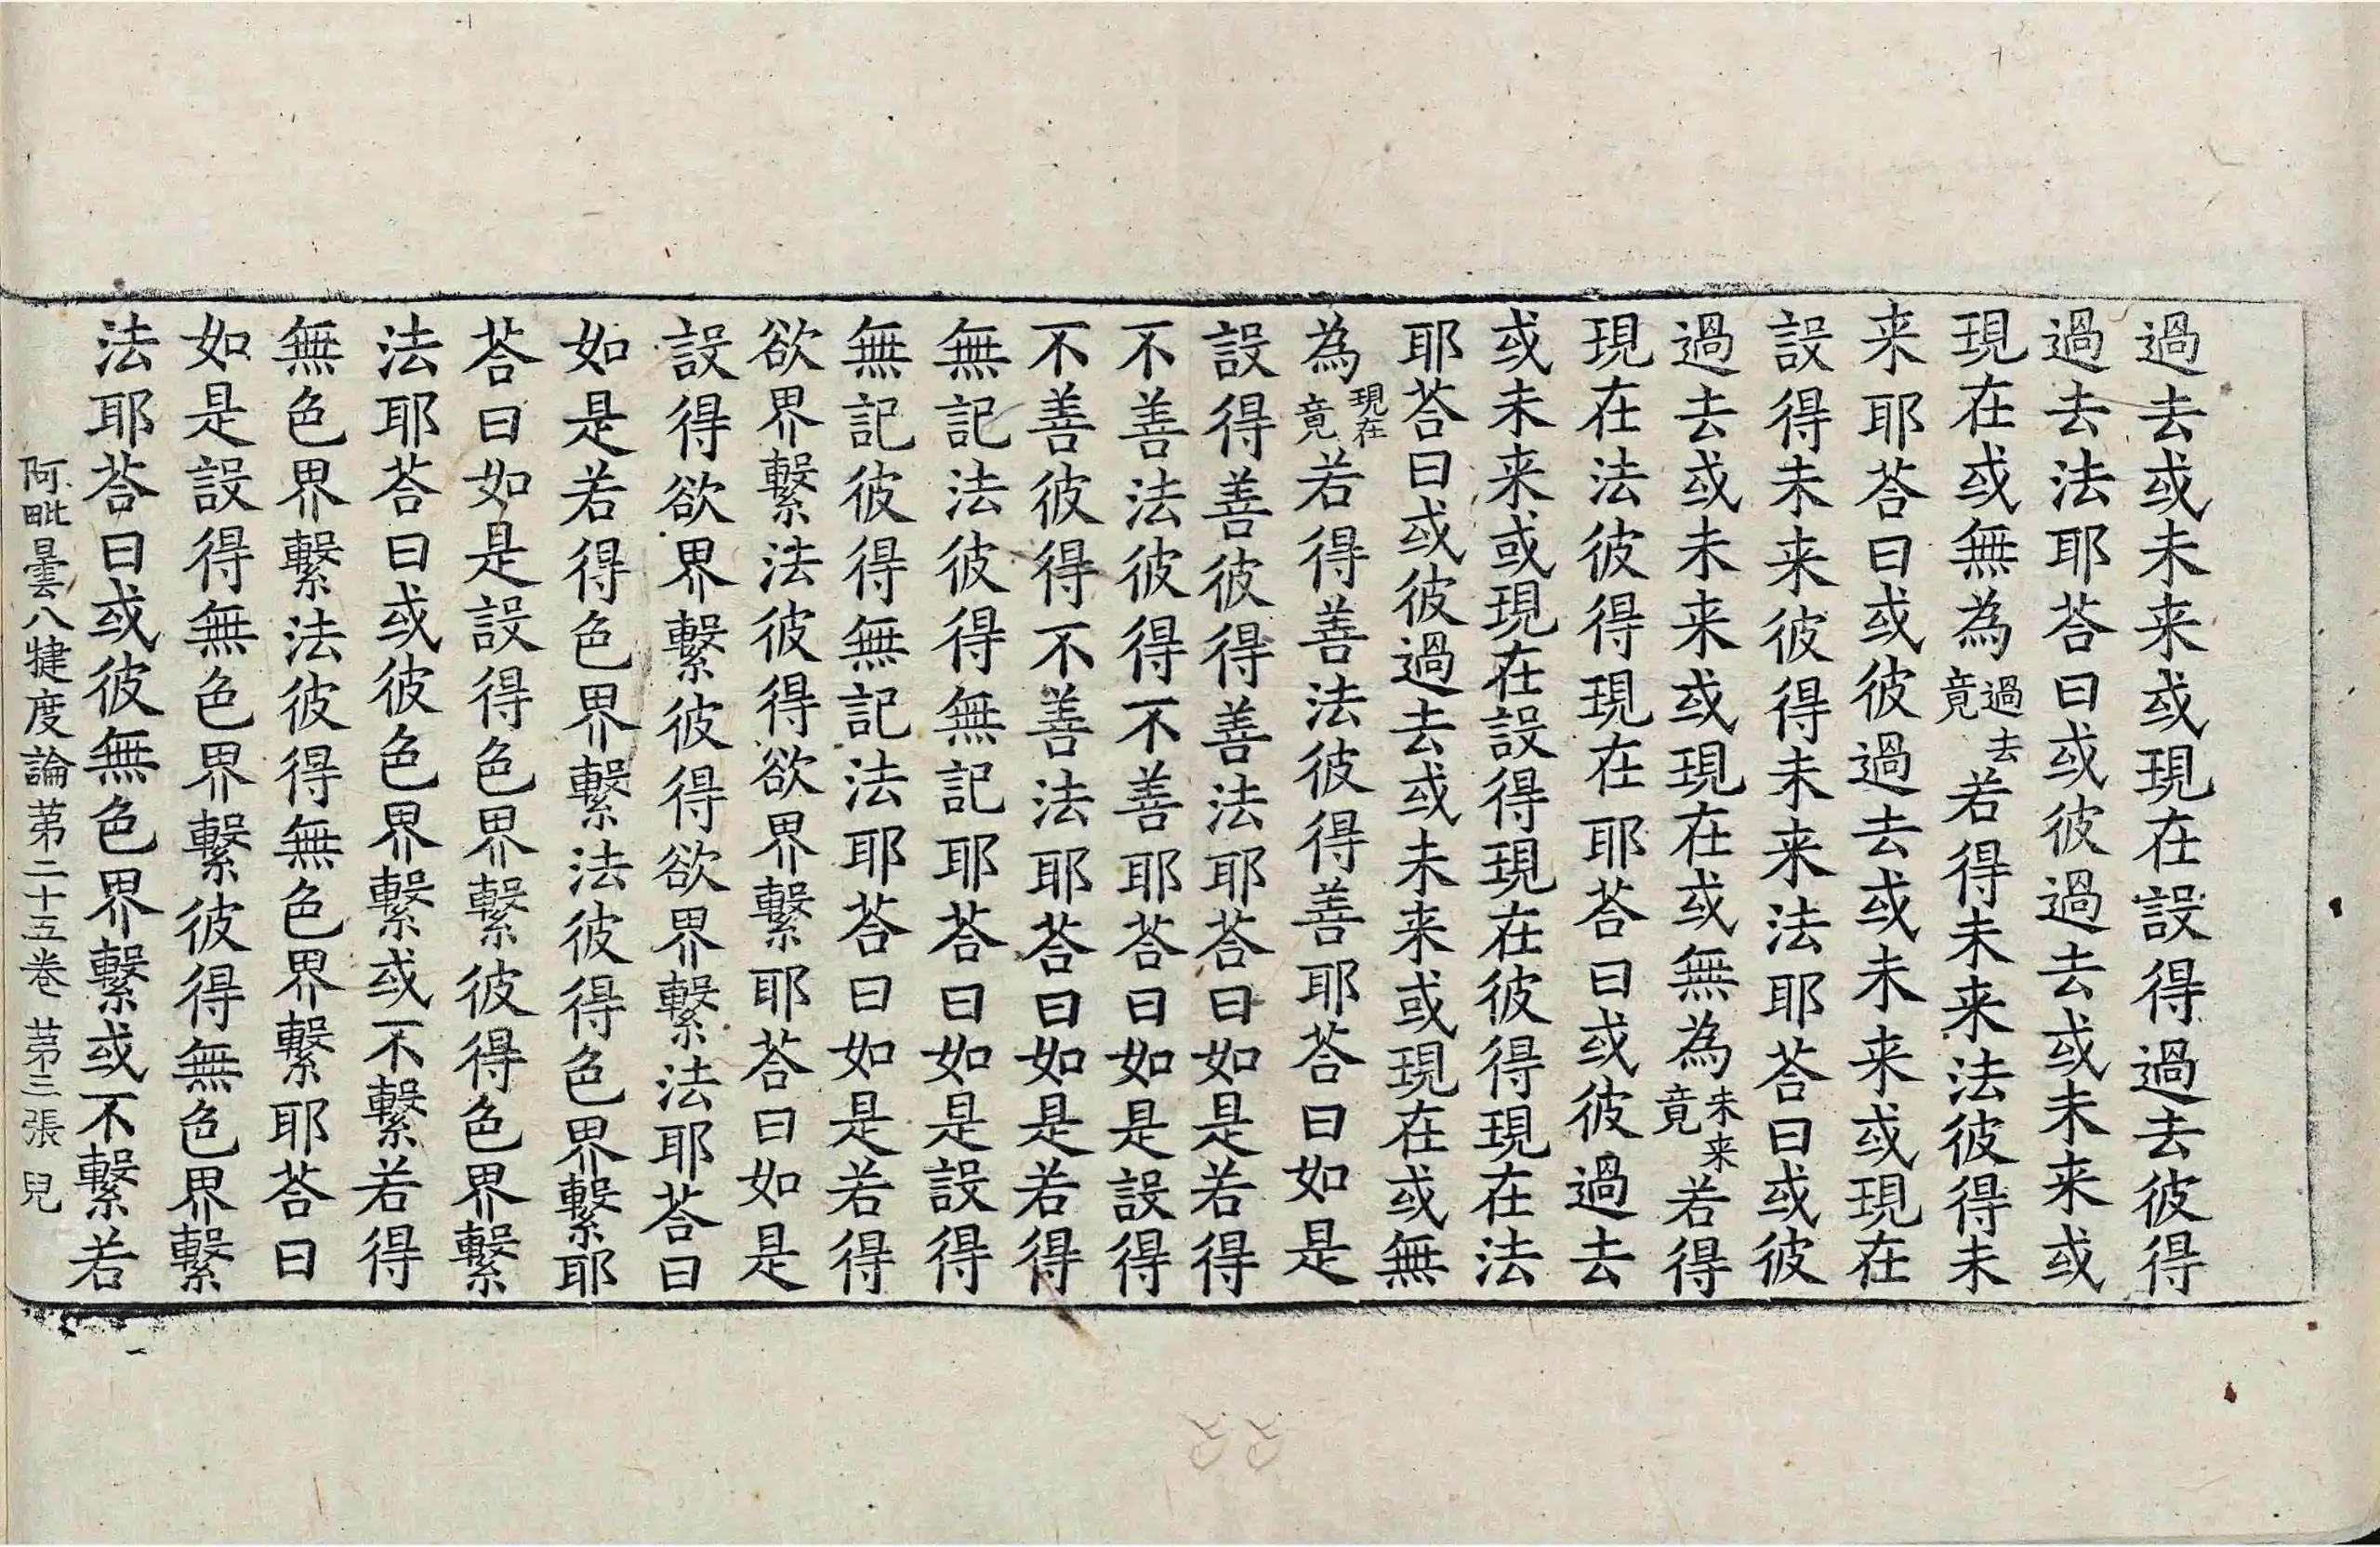 過去或未来或現在設得過去彼得
過去法耶荅曰或彼過去或未来或
現在或無為過去竟若得未来法彼得未
来耶荅曰或彼過去或未来或現在
設得未来彼得未来法耶荅曰或彼
過去或未来或現在或無為未来竟若得
現在法彼得現在耶荅曰或彼過去
或未来或現在設得現在彼得現在法
耶荅曰或彼過去或未来或現在或無
為現在竟若得善法彼得善耶荅曰如是
設得善彼得善法耶荅曰如是若得
不善法彼得不善耶荅曰如是設得
不善彼得不善法耶荅曰如是若得
無記法彼得無記耶荅曰如是設得
無記彼得無記法耶荅曰如是若得
欲界繫法彼得欲界繫耶荅曰如是
設得欲界繫彼得欲界繫法耶荅曰
如是若得色界繫法彼得色界繫耶
荅曰如是設得色界繫彼得色界繫
法耶荅曰或彼色界繫或不繫若得
無色界繫法彼得無色界繫耶荅曰
如是設得無色界繫彼得無色界繫
法耶荅曰或彼無色界繫或不繫若
阿毗曇八犍度論苐二十五卷 苐三張 兒